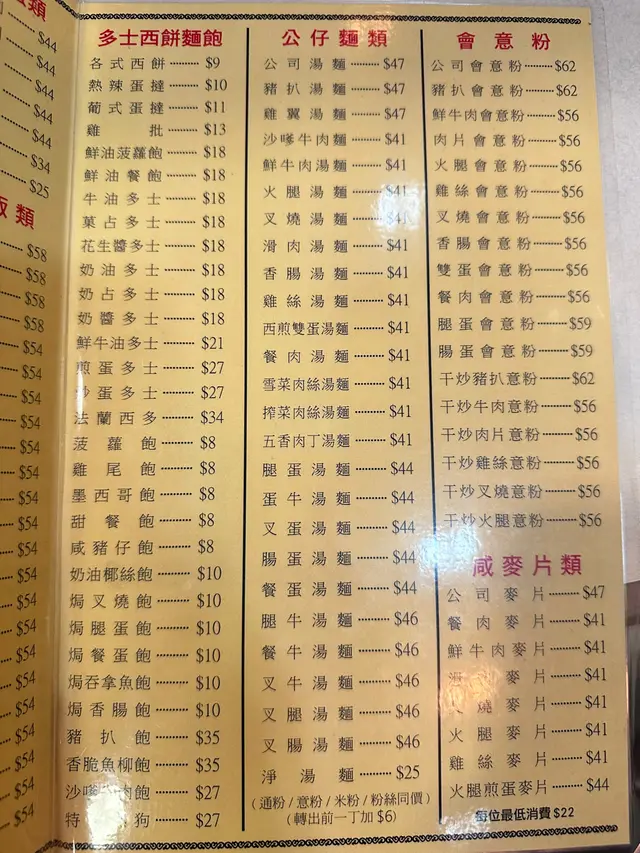 類
$44
$44
$44
$44
$44
$34
$25
飯類
$58
$58
$58
$58
$54
$54
$54
$54
$54
$54
$54
$54
$54
$54
$54
$54
$54
$54
$54
$54
$54
$54
多士西餅麵飽
各式西餅 $9
熱辣蛋撻 $10
葡式蛋撻 $11
雞批 $13
鮮油菠蘿飽 $18
鮮油餐飽 $18
牛油多士 $18
菓占多士 $18
花生醬多士 $18
奶油多士 $18
奶占多士 $18
奶醬多士 $18
鮮牛油多士 $21
煎蛋多士 $27
炒蛋多士 $27
法蘭西多 $34
菠蘿飽 $8
雞尾飽 $8
墨西哥飽 $8
甜餐飽 $8
咸豬仔飽 $8
奶油椰絲飽 $10
焗叉燒飽 $10
焗腿蛋飽 $10
焗餐蛋飽 $10
焗吞拿魚飽 $10
焗香腸飽 $10
豬扒飽 $35
香脆魚柳飽 $35
沙嗲肉飽 $27
特狗 $27
公仔麵類
公司湯麵 $47
豬扒湯麵 $47
雞翼湯麵 $47
沙嗲牛肉麵 $41
鮮牛肉湯麵 $41
火腿湯麵 $41
叉燒湯麵
滑肉湯麵 $41
香腸湯麵 $41
雞絲湯麵 $41
西煎雙蛋湯麵 $41
餐肉湯麵 $41
雪菜肉絲湯麵 $41
搾菜肉絲湯麵 $41
五香肉丁湯麵 $41
腿蛋湯麵 $44
蛋牛湯麵 $44
叉蛋湯麵 $44
腸蛋湯麵 $44
餐蛋湯麵 $44
腿牛湯麵 $46
餐牛湯麵 $46
叉牛湯麵 $46
叉腿湯麵 $46
叉腸湯麵 $46
淨湯麵 $25
(通粉/意粉/米粉/粉絲同價)
(轉出前一丁加 $6)
會意粉
公司會意粉 $62
豬扒會意粉 $62
鮮牛肉會意粉 $56
肉片會意粉 $56
火腿會意粉 $56
雞絲會意粉 $56
叉燒會意粉 $56
香腸會意粉 $56
雙蛋會意粉 $56
餐肉會意粉 $56
腿蛋會意粉 $59
腸蛋會意粉 $59
干炒豬扒意粉 $62
干炒牛肉意粉 $56
干炒肉片意粉 $56
干炒雞絲意粉 $56
干炒叉燒意粉 $56
干炒火腿意粉 $56
咸麥片類
公司麥片 $47
餐肉麥片 $41
鮮牛肉麥片 $41
麥片 $41
燒麥片 $41
火腿麥片 $41
雞絲麥片 $41
火腿煎蛋麥片 $44
每位最低消費 $22